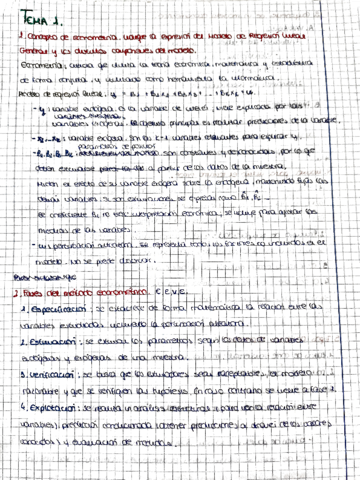 TEMA 1.
1. Concepto de econometría, escribe la expresión del Modelo de Regresión Lineal
General y los distintos componentes del modelo.
Econometría, ciencia que utiliza la teoría económica, matemática y estadística
de forma conjunta, y utilizando como herramienta la informática.
Modelo de regresión lineal, y = B1 + B2x2 + B3x3 + ... + Bkxk + u.
- y: variable endógena. Es la variable de interés, viene explicada por las
variables exógenas. El objetivo principal es realizar predicciones de la variable.
- x2...xk: variable exógena. Son las k-1 variables relevantes para explicar y.
parámetros de posición
- B1, B2, B3, Bk: son constantes y desconocidos, por lo que
deben estimarse a partir de los datos de la muestra.
Miden el efecto de su variable exógena sobre la endógena manteniendo fijas las
demás variables. Si son estimaciones, se expresan como B̂1, B̂2...
El coeficiente B1 no tiene interpretación económica, se incluye para ajustar las
medias de las variables.
- u: perturbación aleatoria. Se representa todos los factores no incluidos en el
modelo. No se puede observar.
2. Fases del método econométrico. E.E.V.E.
1. Especificación: se establece de forma matemática la relación entre las
variables estudiadas incluyendo la perturbación aleatoria.
2. Estimación: se estiman los parámetros según los datos de variables
endógenas y exógenas de una muestra.
3. Verificación: se busca que las estimaciones sean aceptables, el modelo
razonable y que se verifiquen las hipótesis. En caso contrario se vuelve a fase 1.
4. Explotación: se realiza un análisis estructural (para ver la relación entre
variables), predicción condicionada (obtener predicciones a través de los valores
) y evaluación de